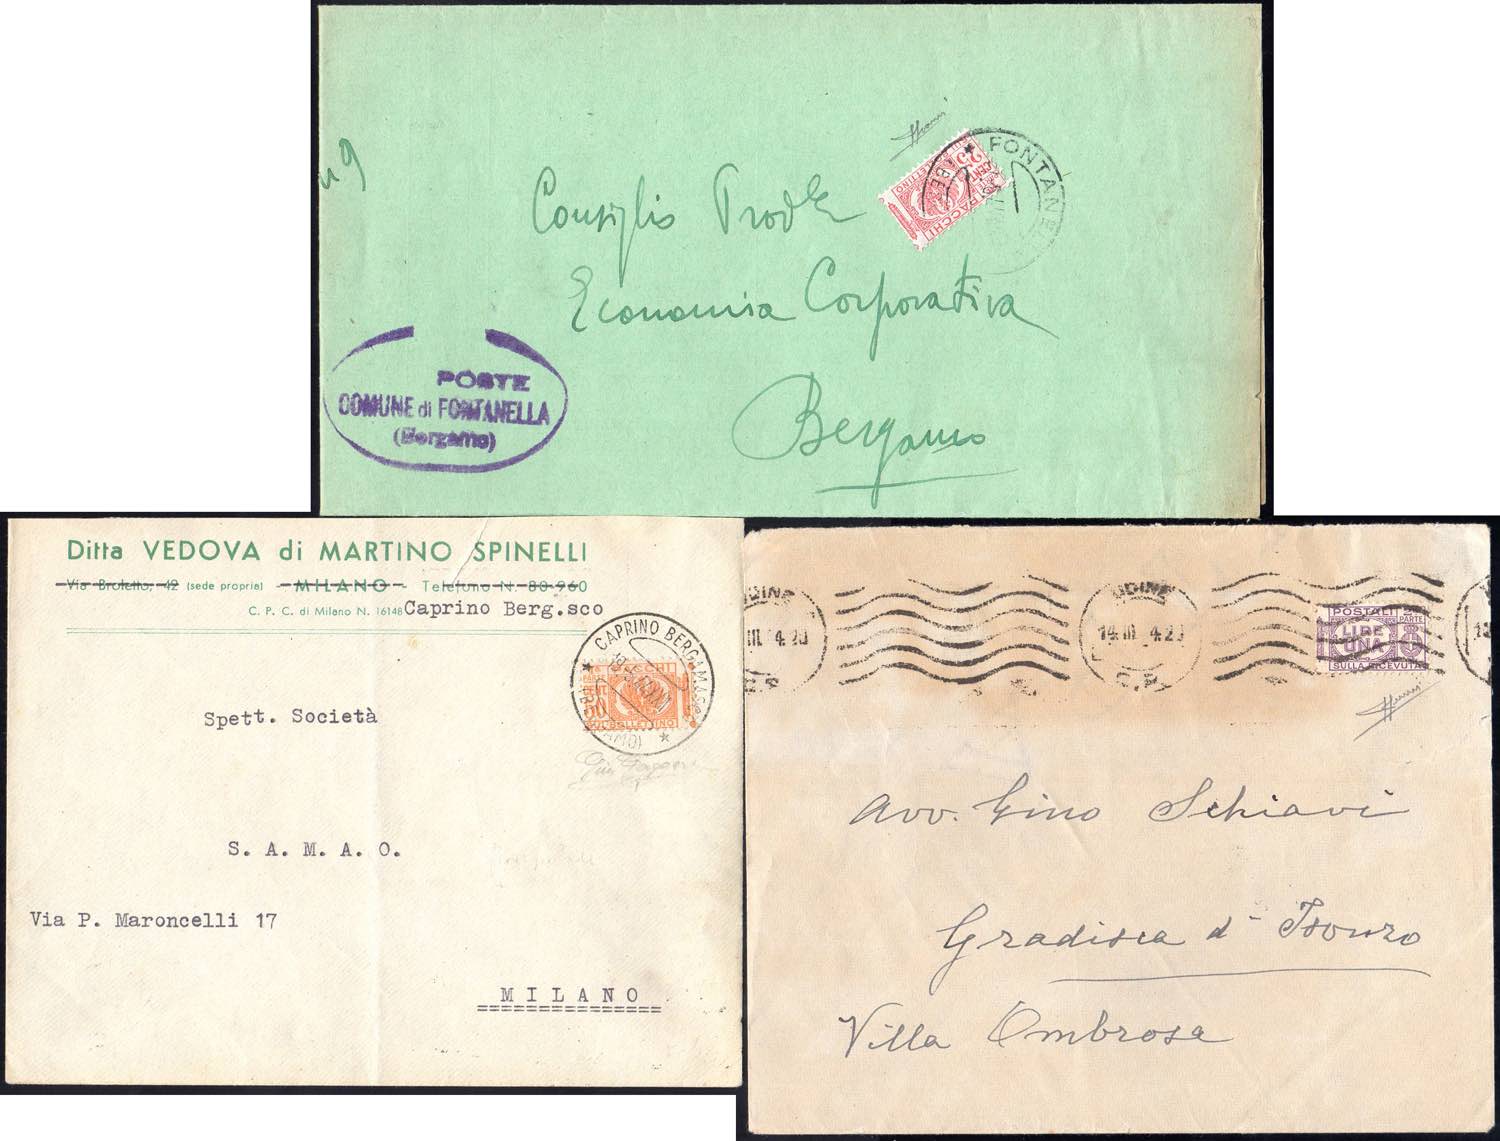 n 9
Consiglio Prov.le
Economia Corporativa
Bergamo
POSTE
COMUNE di FONTANELLA
(Bergamo)
FONTANE
(BE
CENT 25
PACCHI
BOLLETTINO
Ditta VEDOVA di MARTINO SPINELLI
Via Broletto, 42 (sede propria) - MILANO - Telefono N. 80-960
C. P. C. di Milano N. 16148 Caprino Berg.sco
CAPRINO BERGAMASCO
PACCHI
PARTE
CENT 50
SUL BOLLETTINO
Spett. Società
S. A. M. A. O.
Via P. Maroncelli 17
MILANO
UDINE
14. III. 4.20
C.P.
POSTALI
PARTE
LIRE
UNA
SULLA RICEVUTA
Avv. Gino Schiavi
Gradisca d'Isonzo
Villa Ombrosa